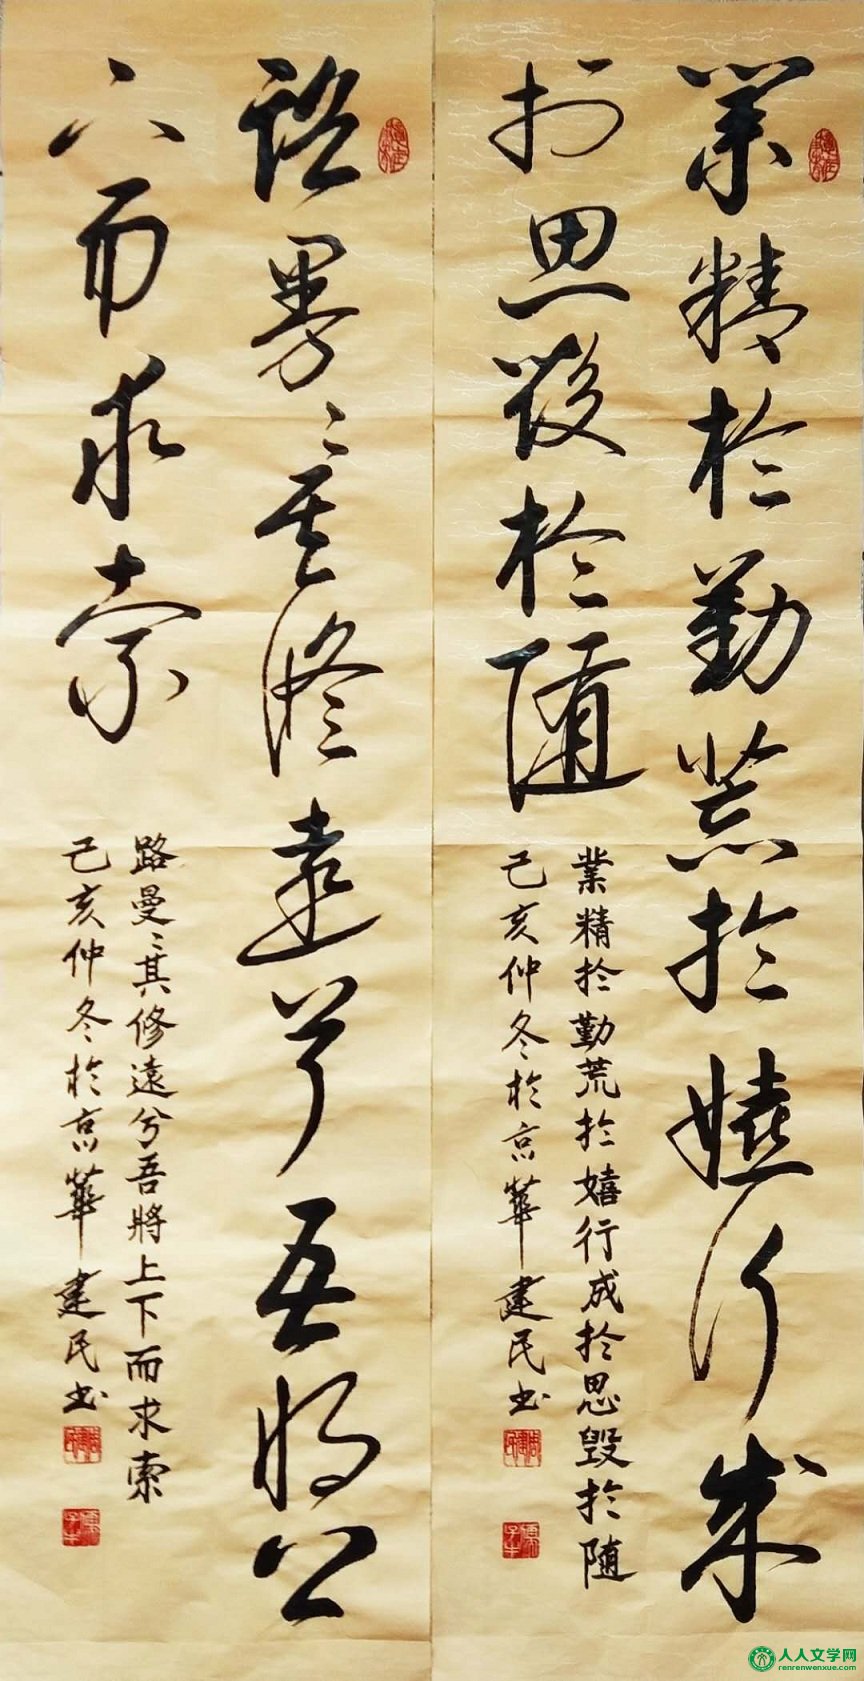 業精於勤荒於嬉行成
於思毀於隨
業精於勤荒於嬉行成於思毀於随
己亥仲冬於京華建民书
路曼〻其修遠兮吾将上
下而求索
路曼〻其修遠兮吾將上下而求索
己亥仲冬於京華建民书
人人文学网
renrenwenxue.com